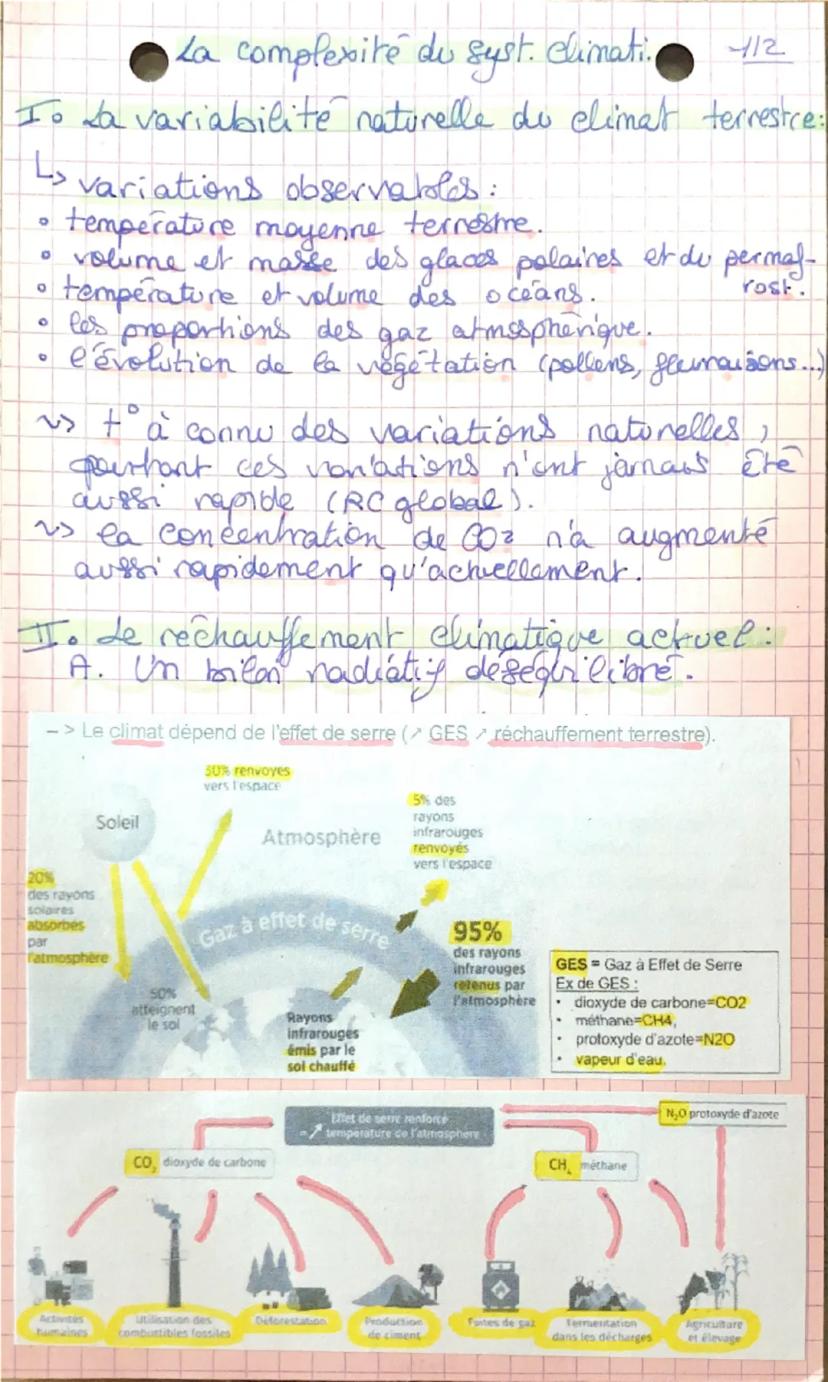 La complexité du syst. climati.
1/2
I. La variabilité naturelle du climat terrestre:
↳ variations observables:
• température moyenne terrestre.
• volume et masse des glaces polaires et du permaf-
rost.
• température et volume des océans.
• les proportions des gaz atmosphérique.
• l'évolution de la végétation (pollens, fleuraisons...)
~> t° à connu des variations naturelles,
pourtant ces variations n'ont jamais été
aussi rapide (RC global).
~> la concentration de CO2 n'a augmenté
aussi rapidement qu'actuellement.
II. Le réchauffement climatique actuel:
A. Un bilan radiatif déséquilibré.
-> Le climat dépend de l'effet de serre (↗ GES ↗ réchauffement terrestre).
30% renvoyés
vers l'espace
Soleil
Atmosphère
5% des
rayons
infrarouges
renvoyés
vers l'espace
20%
des rayons
solaires
absorbés
par
l'atmosphère
Gaz à effet de serre
95%
des rayons
infrarouges
retenus par
l'atmosphère
50%
atteignent
le sol
Rayons
infrarouges
émis par le
sol chauffé
GES = Gaz à Effet de Serre
Ex de GES :
• dioxyde de carbone=CO2
• méthane=CH4,
• protoxyde d'azote=N2O
• vapeur d'eau.
Effet de serre renforcé
= ↗ température de l'atmosphère
N₂O protoxyde d'azote
CO₂ dioxyde de carbone
CH₄ méthane
Activités
humaines
Utilisation des
combustibles fossiles
Déforestation
Production
de ciment
Fuites de gaz
Fermentation
dans les décharges
Agriculture
et élevage